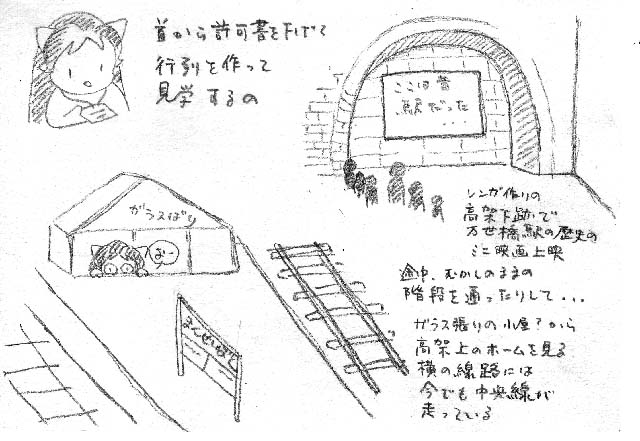 首から許可書を下げて
行列を作って
見学するの
ここは昔
駅だった
....
レンガ作りの
高架下跡で
万世橋駅の歴史の
ミニ映画上映
途中、むかしのままの
階段を通ったりして...
ガラスばり
おー
まんせいばし
ガラス張りの小屋?から
高架上のホームを見る
横の線路には
今でも中央線が
走っている